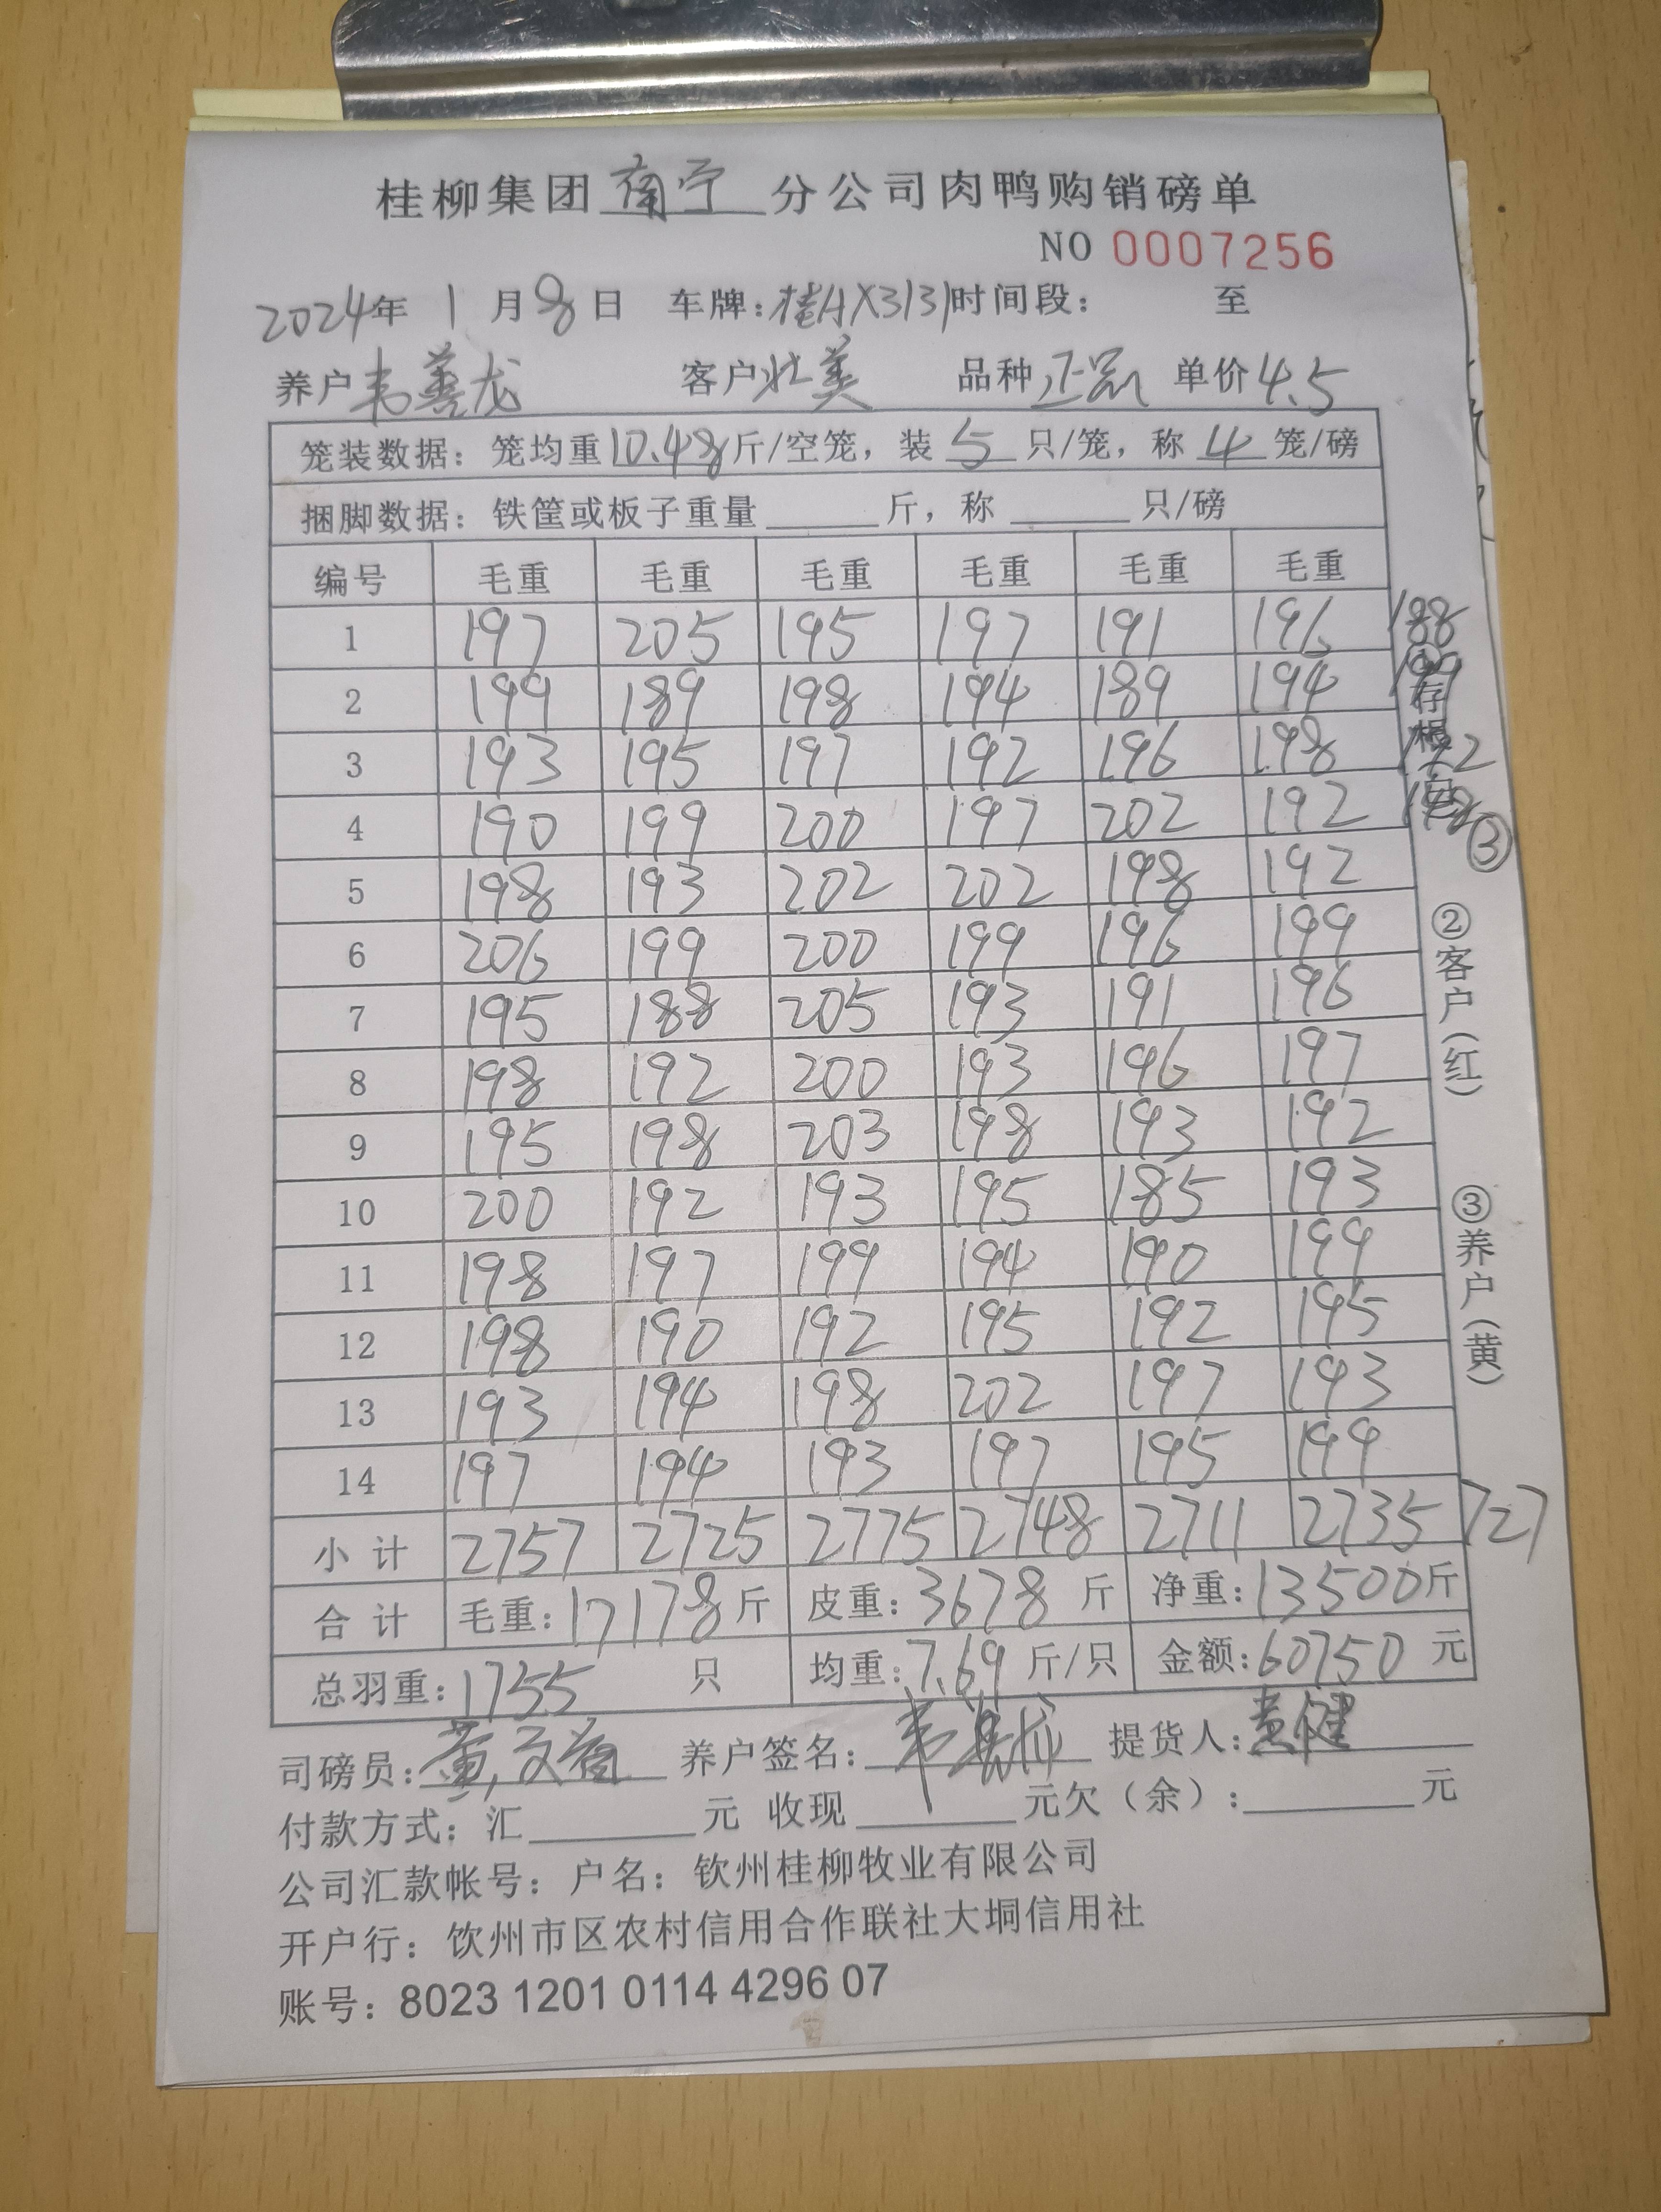 桂柳集团南宁分公司肉鸭购销磅单
NO 0007256
2024年 1 月 8 日 车牌:桂AX3131 时间段: 至
养户 韦善龙 客户 壮美 品种 正品 单价 4.5
笼装数据:笼均重 10.48 斤/空笼,装 5 只/笼,称 4 笼/磅
捆脚数据:铁筐或板子重量 斤,称 只/磅
编号 毛重 毛重 毛重 毛重 毛重 毛重
1 197 205 195 197 191 196 188
2 199 189 198 194 189 194
3 193 195 197 192 196 198
4 190 199 200 197 202 192 ③
5 198 193 202 202 198 192
6 206 199 200 199 196 199
7 195 188 205 193 191 196
8 198 192 200 193 196 197
9 195 198 203 198 193 192
10 200 192 193 195 185 193
11 198 197 199 194 190 199
12 198 190 192 195 192 195
13 193 194 198 202 197 193
14 197 194 193 197 195 199
小计 2757 2725 2775 2748 2711 2735 727
合计 毛重:17178 斤 皮重:3678 斤 净重:13500 斤
总羽重:1755 只 均重:7.69 斤/只 金额:60750 元
司磅员: 养户签名: 提货人:黄健
付款方式:汇 元 收现 元欠(余): 元
公司汇款帐号:户名:钦州桂柳牧业有限公司
开户行:饮州市区农村信用合作联社大垌信用社
账号:8023 1201 0114 4296 07
存根
②客户(红)
③养户(黄)